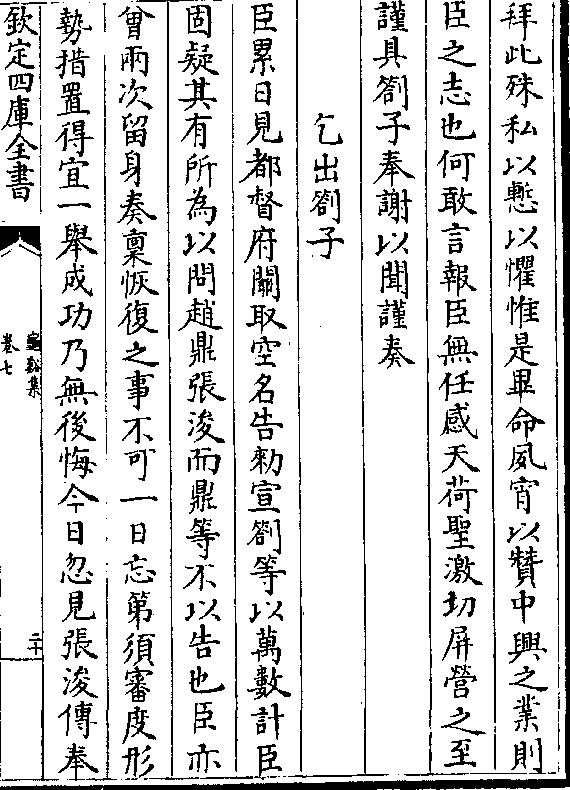 拜此殊私以慙以懼惟是畢命夙宵以贊中興之業則
臣之志也何敢言報臣無任感天荷聖激切屏營之至
謹具劄子奉謝以聞謹奏
乞出劄子
臣累日見都督府關取空名告勅宣劄等以萬數計臣
固疑其有所為以問趙鼎張浚而鼎等不以告也臣亦
曾兩次留身奏稟恢復之事不可一日忘第須審度形
勢措置得宜一舉成功乃無後悔今日忽見張浚傳奉
欽定四庫全書
龜谿集
卷七
二十